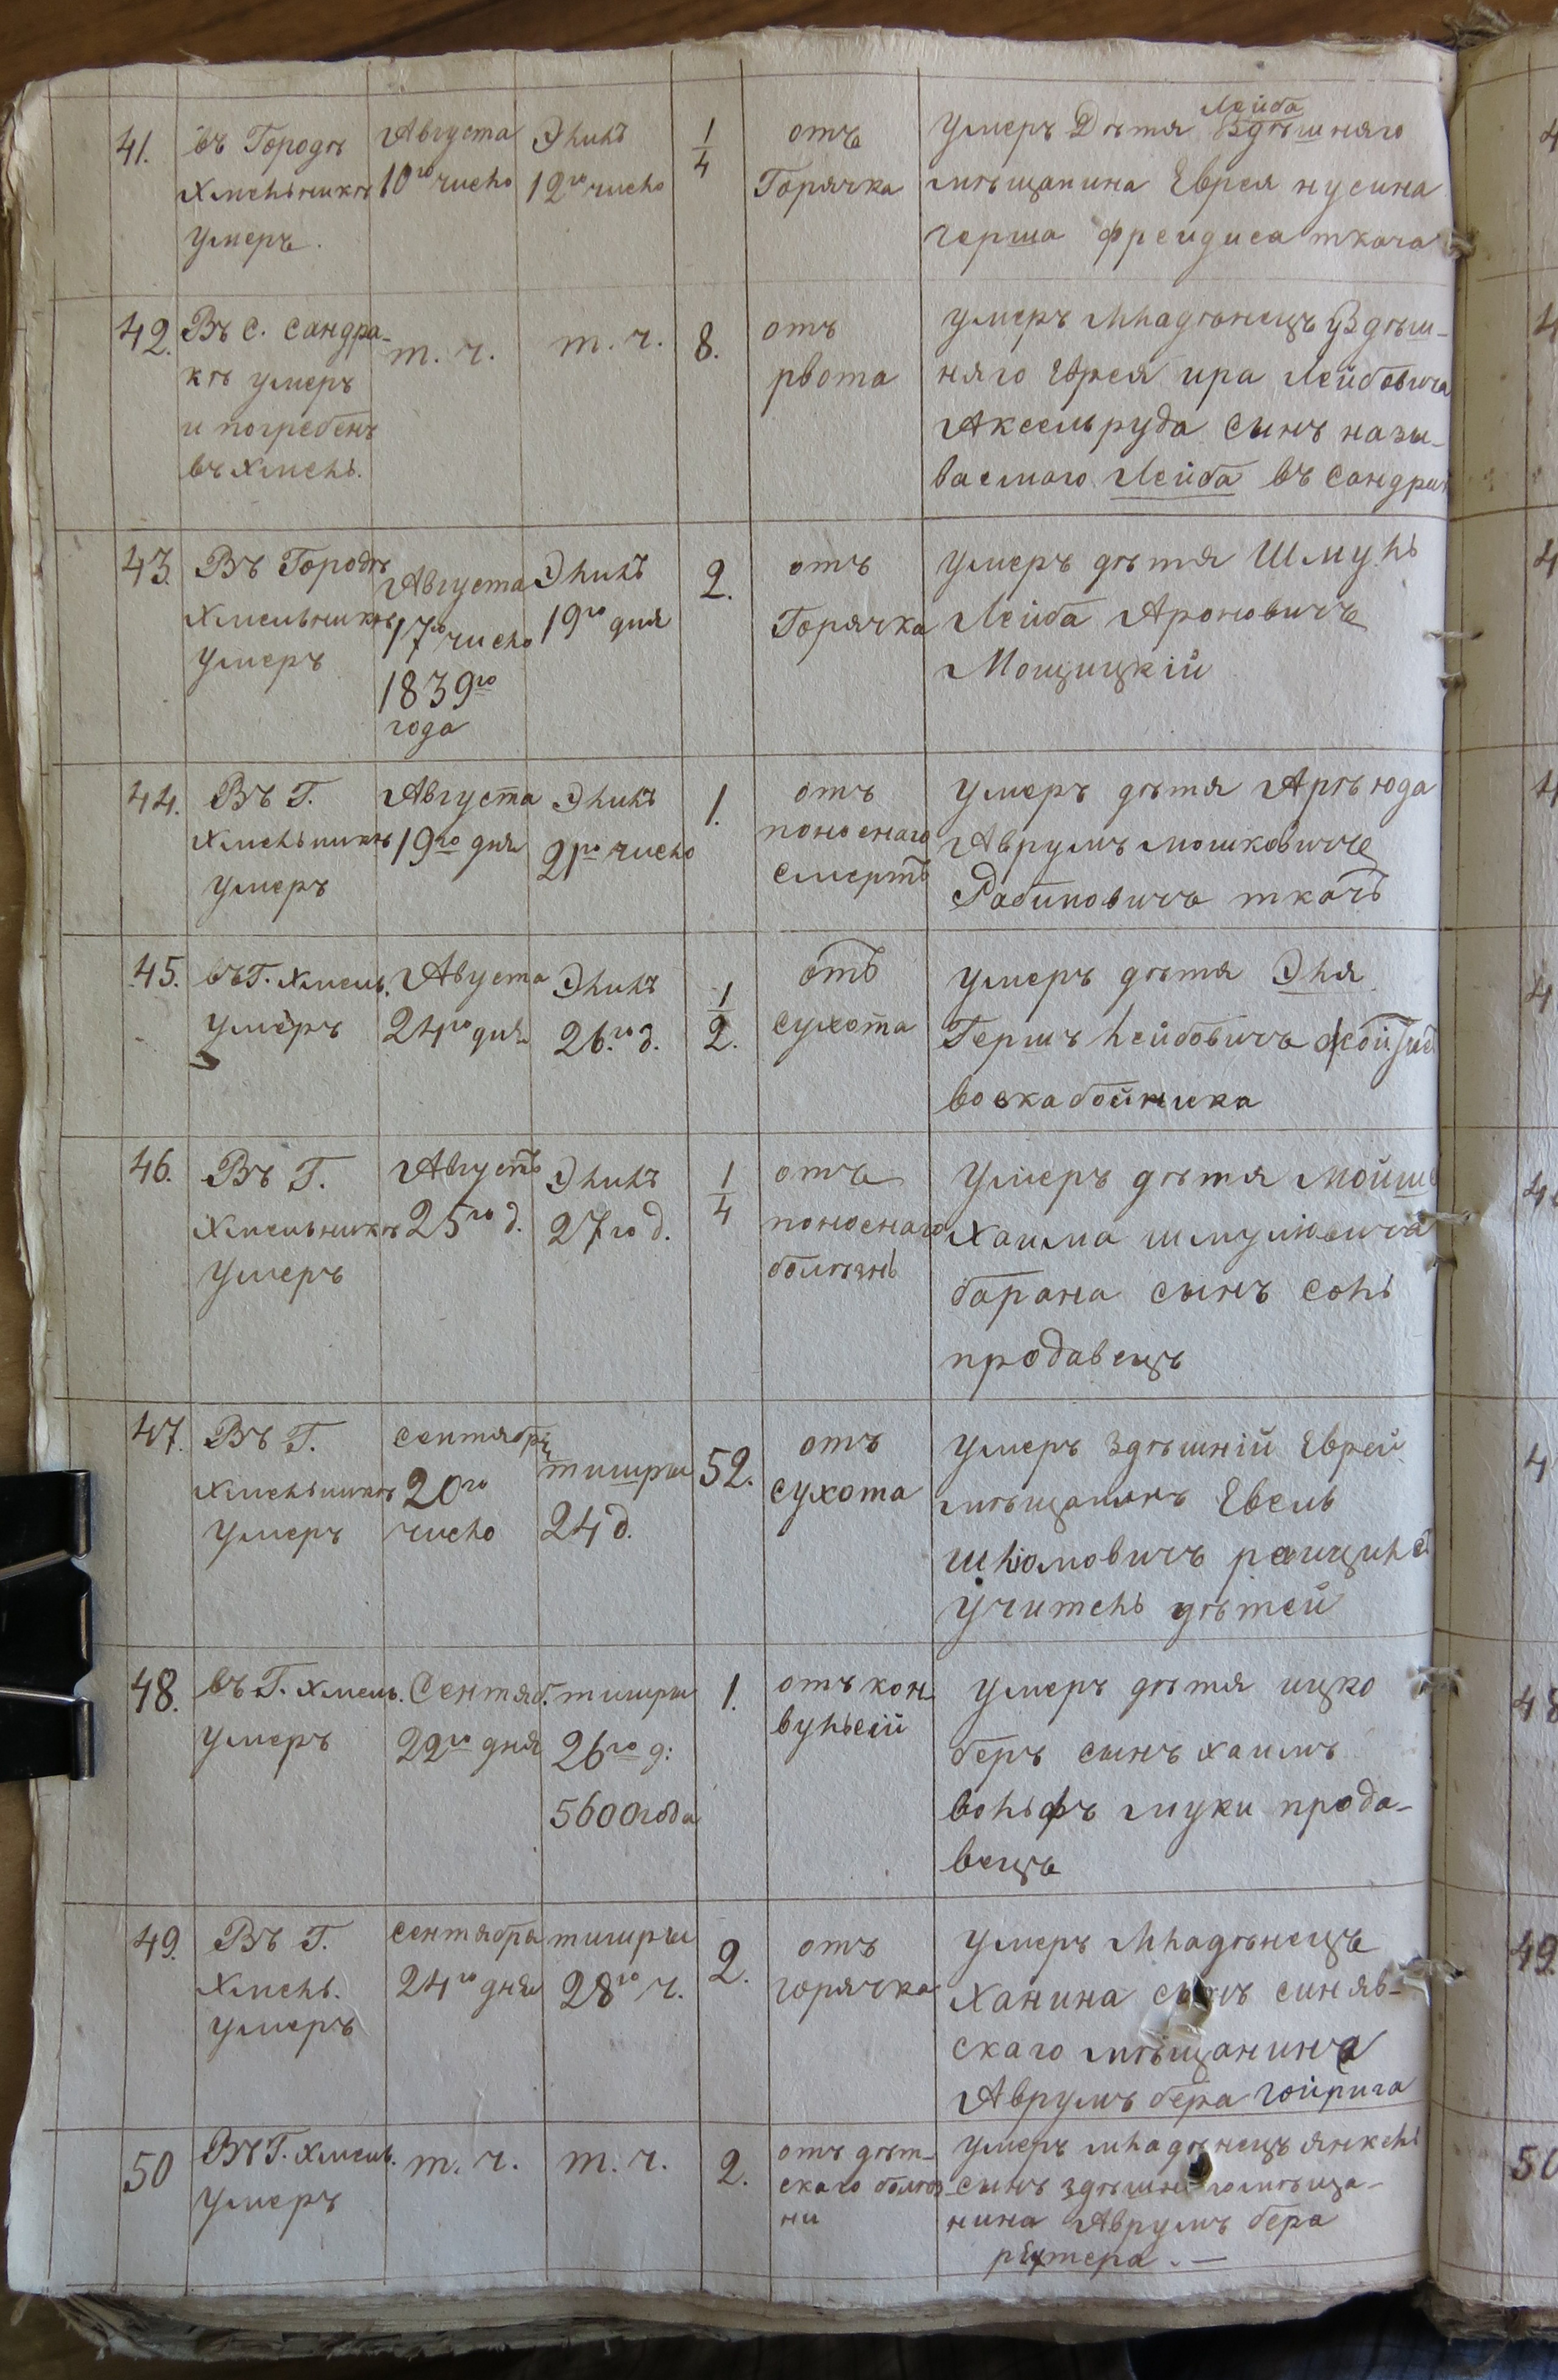 41.
въ Городѣ
Хмельникѣ
умеръ.
Августа
10го число
Элилъ
12го число
1/4
отъ
Горячка
Лейба
умеръ Дѣтя Здѣшняго
мѣщанина Еврея нусина
герша фрейдиса ткача
42.
Въ с. Сандра-
кѣ умеръ
и погребенъ
въ Хмель.
т. ч.
т. ч.
8.
отъ
рвота
умеръ Младѣнецъ Здѣш-
няго Еврея ира Лейбовича
Аксельруда сынъ назы-
ваемаго Лейба въ Сандрак
43.
Въ Городѣ
Хмельникѣ
умеръ
Августа
17го число
1839го
года
Элилъ
19го дня
2.
отъ
Горячка
умеръ дѣтя Шмуль
Лейба Ароновичъ
Мощицкій
44.
Въ Г.
Хмельникѣ
умеръ
Августа
19го дня
Элилъ
21го число
1.
отъ
поноснаго
смерть
умеръ дѣтя Арѣюда
Аврумъ мошковичъ
Рабиновичъ ткачъ
45.
въ Г. Хмель.
умеръ
Августа
24го дня
Элилъ
26.го д.
1/2.
отъ
сухота
умеръ дѣтя Эля
Гершъ лейбовичъ
воскабойника
46.
Въ Г.
Хмельникѣ
умеръ
Августъ
25го д.
Элилъ
27го д.
1/4
отъ
поноснаго
болѣзнь
умеръ дѣтя Мойше
Хаима шмулювича
барана сынъ соль
продавецъ
47.
Въ Г.
Хмельникѣ
умеръ
сентября
20го
число
тишры
24 д.
52.
отъ
сухота
умеръ здѣшній Еврей
мѣщанинъ Евель
шлюмовичъ
Учитель дѣтей
48.
въ Г. Хмель.
умеръ
Сентяб.
22го дня
тишры
26го д:
5600 года
1.
отъ кон
вульсій
умеръ дѣтя ицко
беръ сынъ хаимъ
вольфъ муки прода-
вецъ
49.
Въ Г.
Хмель.
умеръ
сентября
24го дня
тишры
28го ч.
2.
отъ
горячка
умеръ Младѣнецъ
Ханина сынъ синяв-
скаго мѣщанина
Аврумъ бера гойрига
50
Въ Г. Хмель.
умеръ
т. ч.
т. ч.
2.
отъ дѣт-
скаго болѣз
ни
умеръ младѣнецъ янкель
сынъ здѣшняго мѣща-
нина Аврумъ бера
рехтера. —